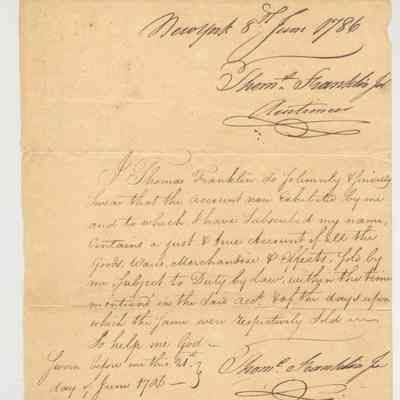 New York 8th June 1786
Thomˢ. Franklin Jr
Auctioneer
I Thomas Franklin do Solemnly & sincerely
swear that the account now Exhibited by me
and to which I have Subscribed my name,
Contains a just & true Account of all the
Goods, Wares, Merchandise & Effects, Sold by
me Subject to Duty by law, within the time
mentioned in the said acct. & of the days upon
which the same were respectively sold
So help me God
Sworn before me this 21st.
day of June 1786
Thomˢ. Franklin Jr